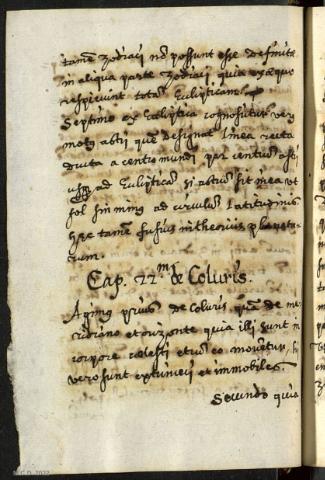 tamẽ Zodiaci nõ possunt esse definitæ
in aliqua parte Zodiaci quia ex æquo
respiciunt totam Eclipticam
Septimo ex Ecliptica cognoscitur verus
motus astri quẽ designat linea recta
ducta a centro mundi per centrum astri
usq; ad Eclipticam si astrum sit in ea ut
sol sin minus ad circulum Latitudinis
hæc tamẽ fusius in theoricis planeta-
rum.
Cap. 22.m de Coluris.
Agimus prius de Coluris quã de me
ridiano et orizonte quia illi sunt in
corpore cælesti et cum eo moventur, hi
vero sunt extrinseci et immobiles.
Secundo quia